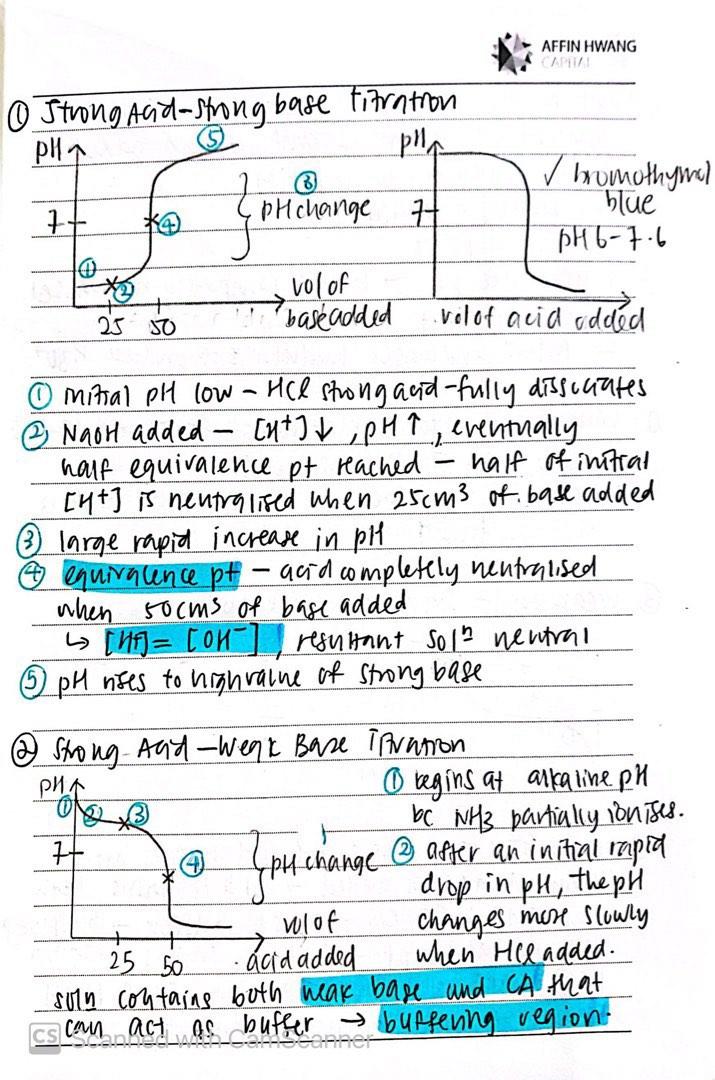 AFFIN HWANG
CAPITAL
① Strong Acid-strong base titration
pH
7
①
②
③
④
⑤
pH change
25 50
vol of
base added
pH
7
✓ bromothymol
blue
pH 6-7.6
vol of acid added
① initial pH low - HCl strong acid - fully dissociates
② NaOH added - [H+]↓, pH↑, eventually
half equivalence pt reached - half of initial
[H+] is neutralised when 25cm³ of base added
③ large rapid increase in pH
④ equivalence pt - acid completely neutralised
when 50cm³ of base added
↳ [H+] = [OH⁻], resultant solⁿ neutral
⑤ pH rises to high value of strong base
② Strong Acid-Weak Base Titration
pH
7
①
②
③
④
pH change
25 50
vol of
acid added
① begins at alkaline pH
bc NH3 partially ionises.
② after an initial rapid
drop in pH, the pH
changes more slowly
when HCl added.
soln contains both weak base and CA that
can act as buffer → buffering region.
CS Scanned with CamScanner